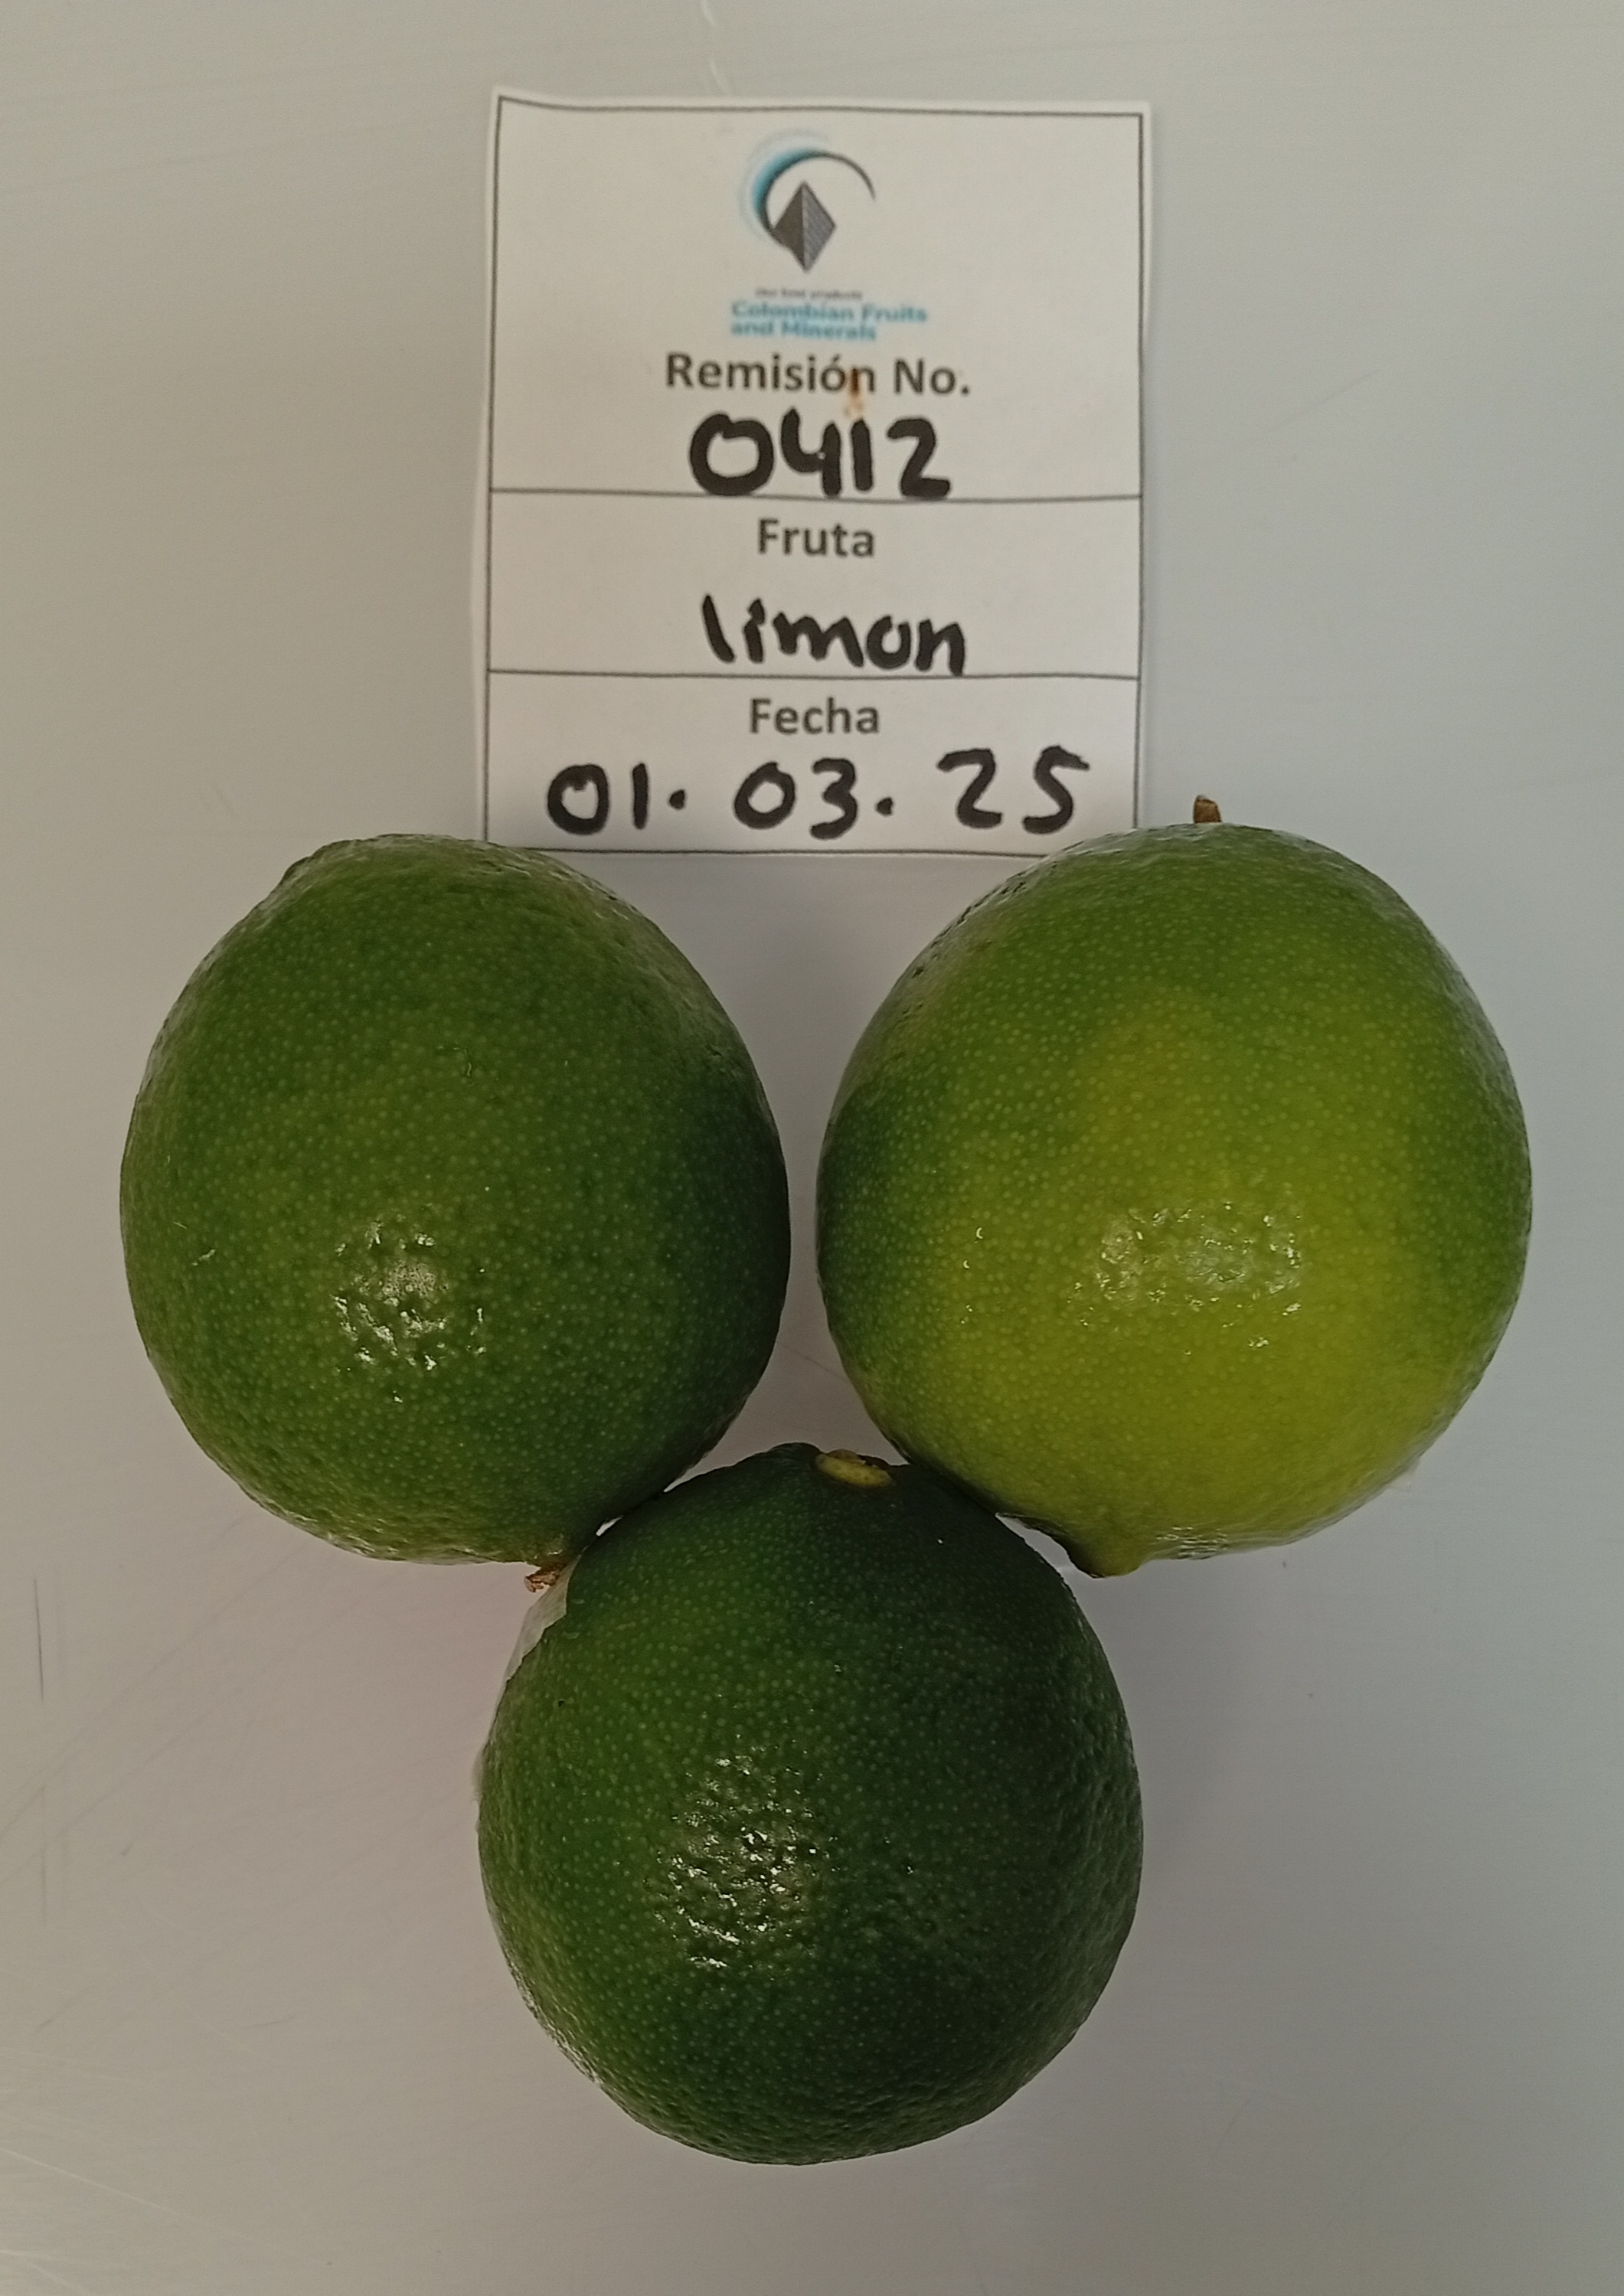 Colombian Fruits
and Minerals
Remisión No.
0412
Fruta
limon
Fecha
01. 03. 25